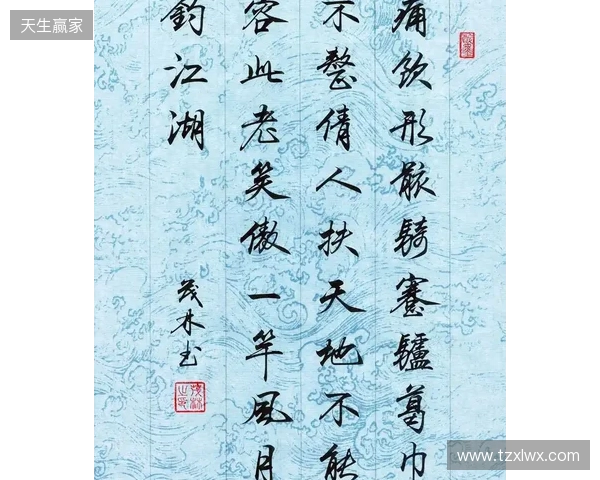 天生赢家
痛饮形骸騎蹇驢葛巾
不整倩人扶天地不能
容此老笑傲一竿風月
釣江湖
茂林书
www.tzxlwx.com